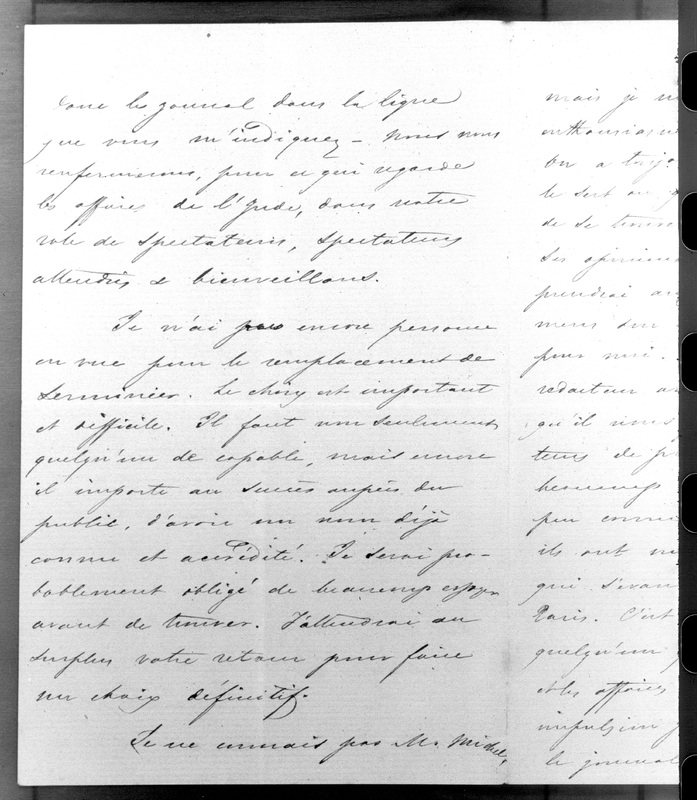 donc le journal dans la ligne
que vous m'indiquez – Nous nous
renfermerons, pour ce qui regarde
les affaires de l'Inde, dans notre
role de spectateurs, spectateurs
attendris & bienveillans.
Je n'ai pas encore personne
en vue pour le remplacement de
Le choix est important
et difficile. Il faut non seulement
quelqu'un de capable, mais encore
il importe au succès auprès du
public, d'avoir un nom déjà
connu et accrédité. Je serai pro-
bablement obligé de beaucoup essayer
avant de trouver. J'attendrai au
surplus votre retour pour faire
un choix définitif.
Je ne connais pas Mr. Michel,
mais je
on a
le sort
de se
ses
prendrai
mens sur
pour moi.
rédacteur
qu'il
beaucoup
peu
ils ont
qui
Paris. C'est
quelqu'un
et les affaires
impulsion
le journal